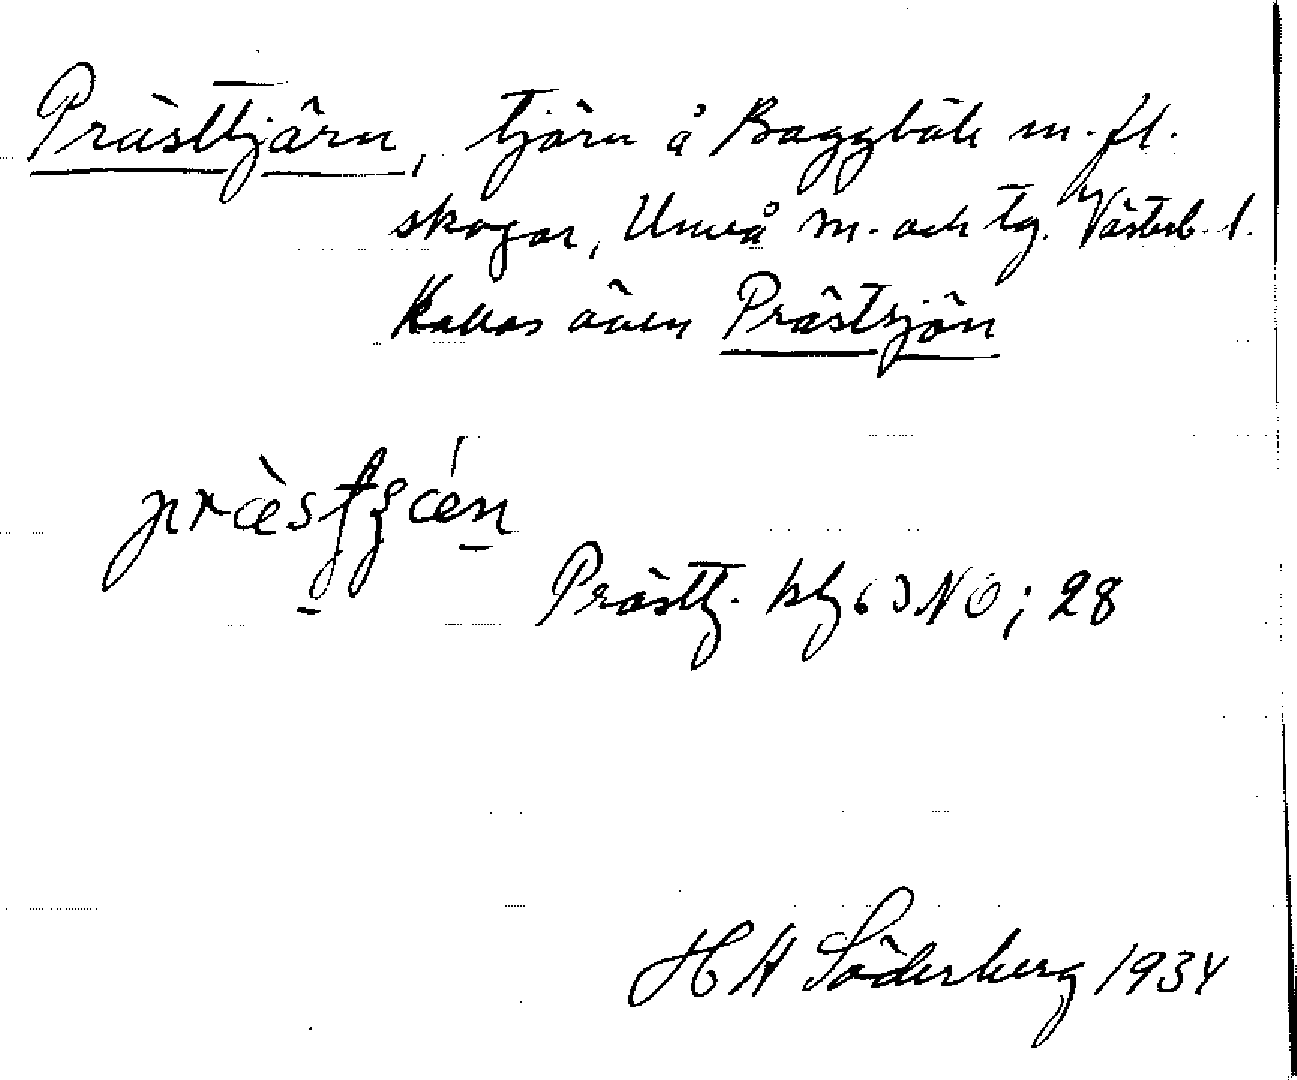 Prästtjärn, tjärn å Baggböle m. fl.
skogar, Umeå m. och tg. Västerb. l.
Kallas även Prästsjön
Prästtj. kbl 63 NO; 28
H A Söderberg 1934